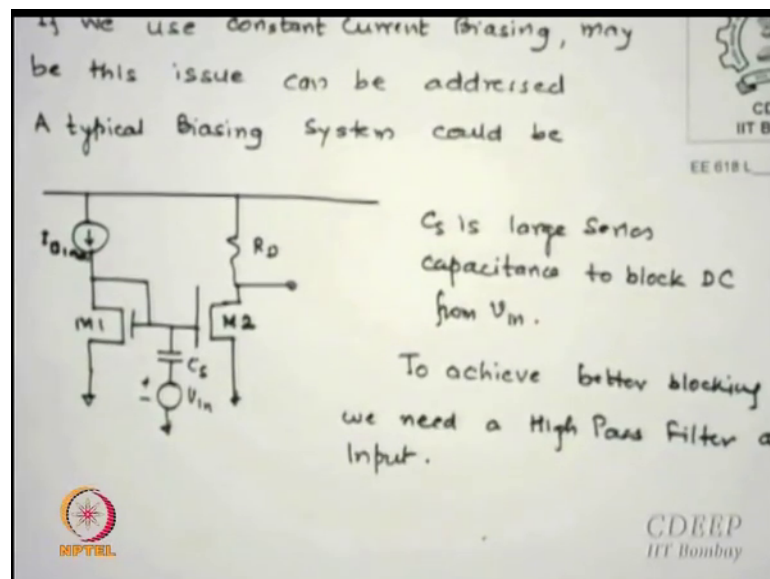 If we use constant current Biasing, may
be this issue can be addressed
A typical Biasing System could be
CD
IIT B
EE 618 L
RD
M1
M2
Cs
Vin
Cs is large Series
capacitance to block DC
from Vin.
To achieve better blocking
we need a High Pass Filter a
Input.
NPTEL
CDEEP
IIT Bombay